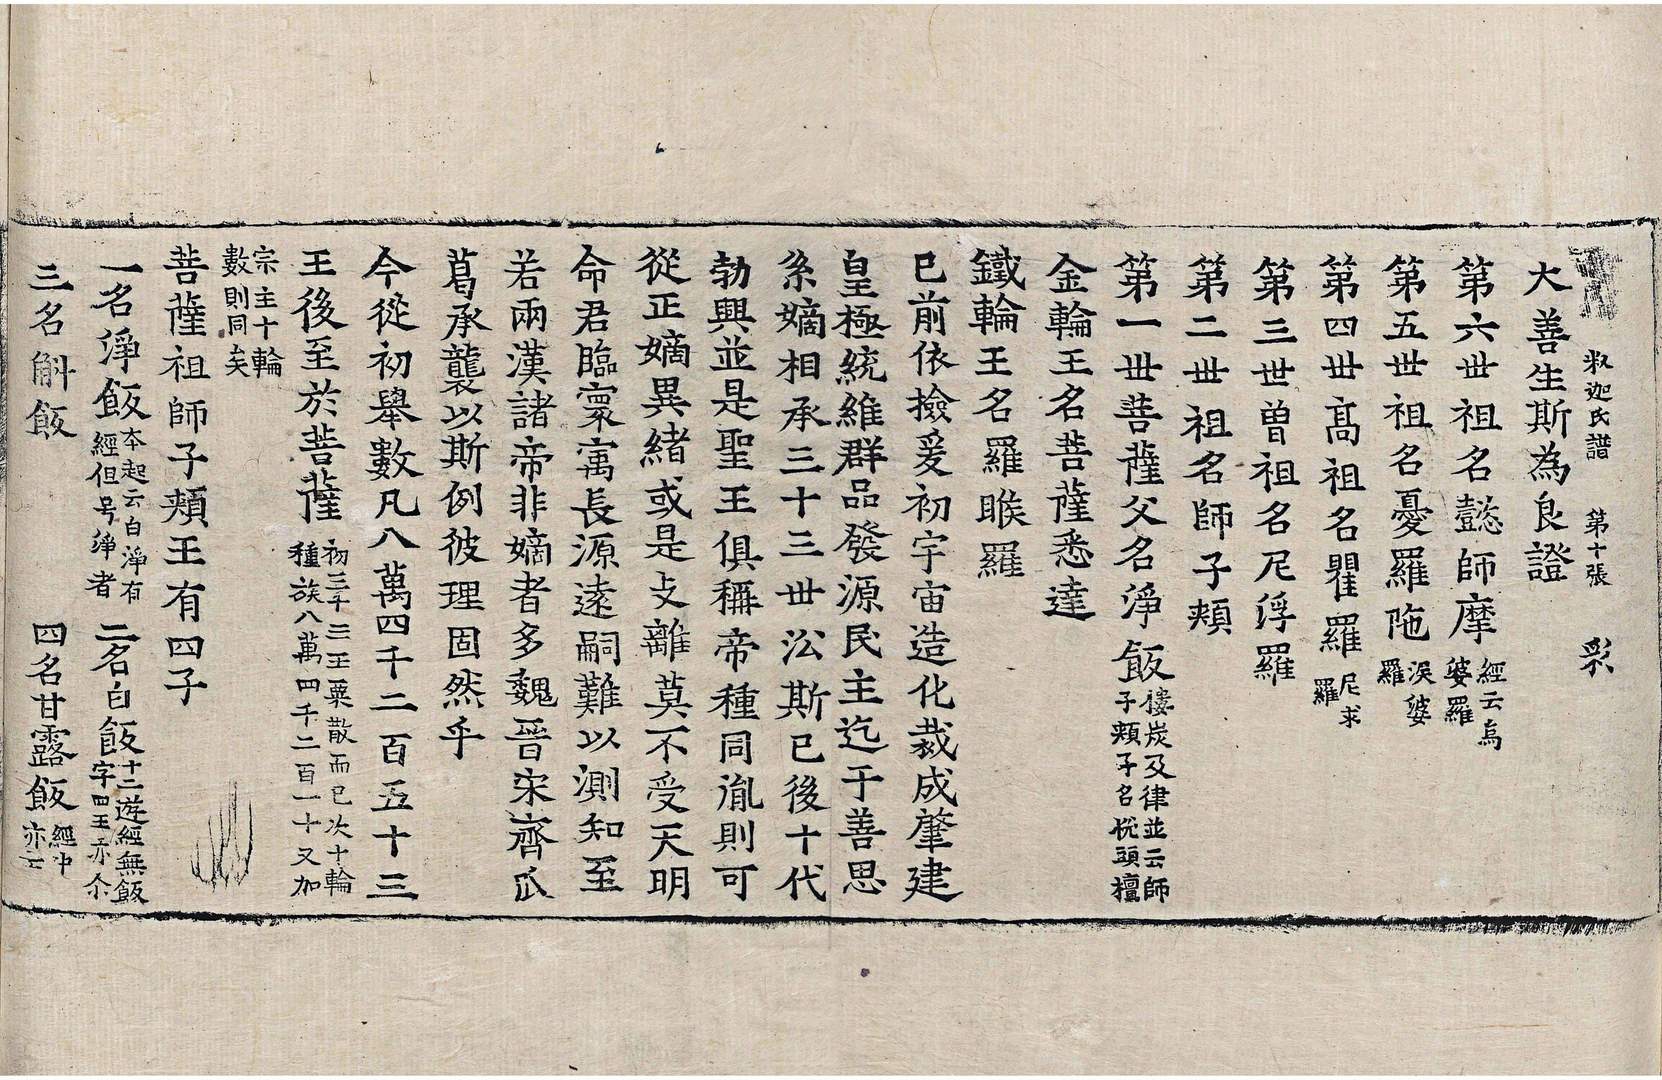 釈迦氏譜　第十張　彩
大善生斯為良證
第六世祖名懿師摩經云烏婆羅
第五世祖名憂羅陁淚婆羅
第四世高祖名瞿羅尼求羅
第三世曽祖名尼浮羅
第二世祖名師子頬
第一世菩薩父名淨飯樓炭及律並云師子頬子名恱頭檀
金輪王名菩薩悉達
鐵輪王名羅睺羅
已前依撿爰初宇宙造化裁成肇建
皇極統維群品發源民主迄于善思
系嫡相承三十三世訟斯已後十代
勃興並是聖王俱稱帝種同胤則可
從正嫡異緒或是支離莫不受天明
命君臨寰寓長源遠嗣難以測知至
若兩漢諸帝非嫡者多魏晉宋齊瓜
葛承襲以斯例彼理固然乎
今從初舉數凡八萬四千二百五十三
王後至於菩薩初三十三王粟散而已次十輪種族八萬四千二百一十又加
宗主十輪數則同矣
菩薩祖師子頬王有四子
一名淨飯本起云白淨有經但号淨者二名白飯十二遊經無飯字四王亦尒
三名斛飯　四名甘露飯經中亦云